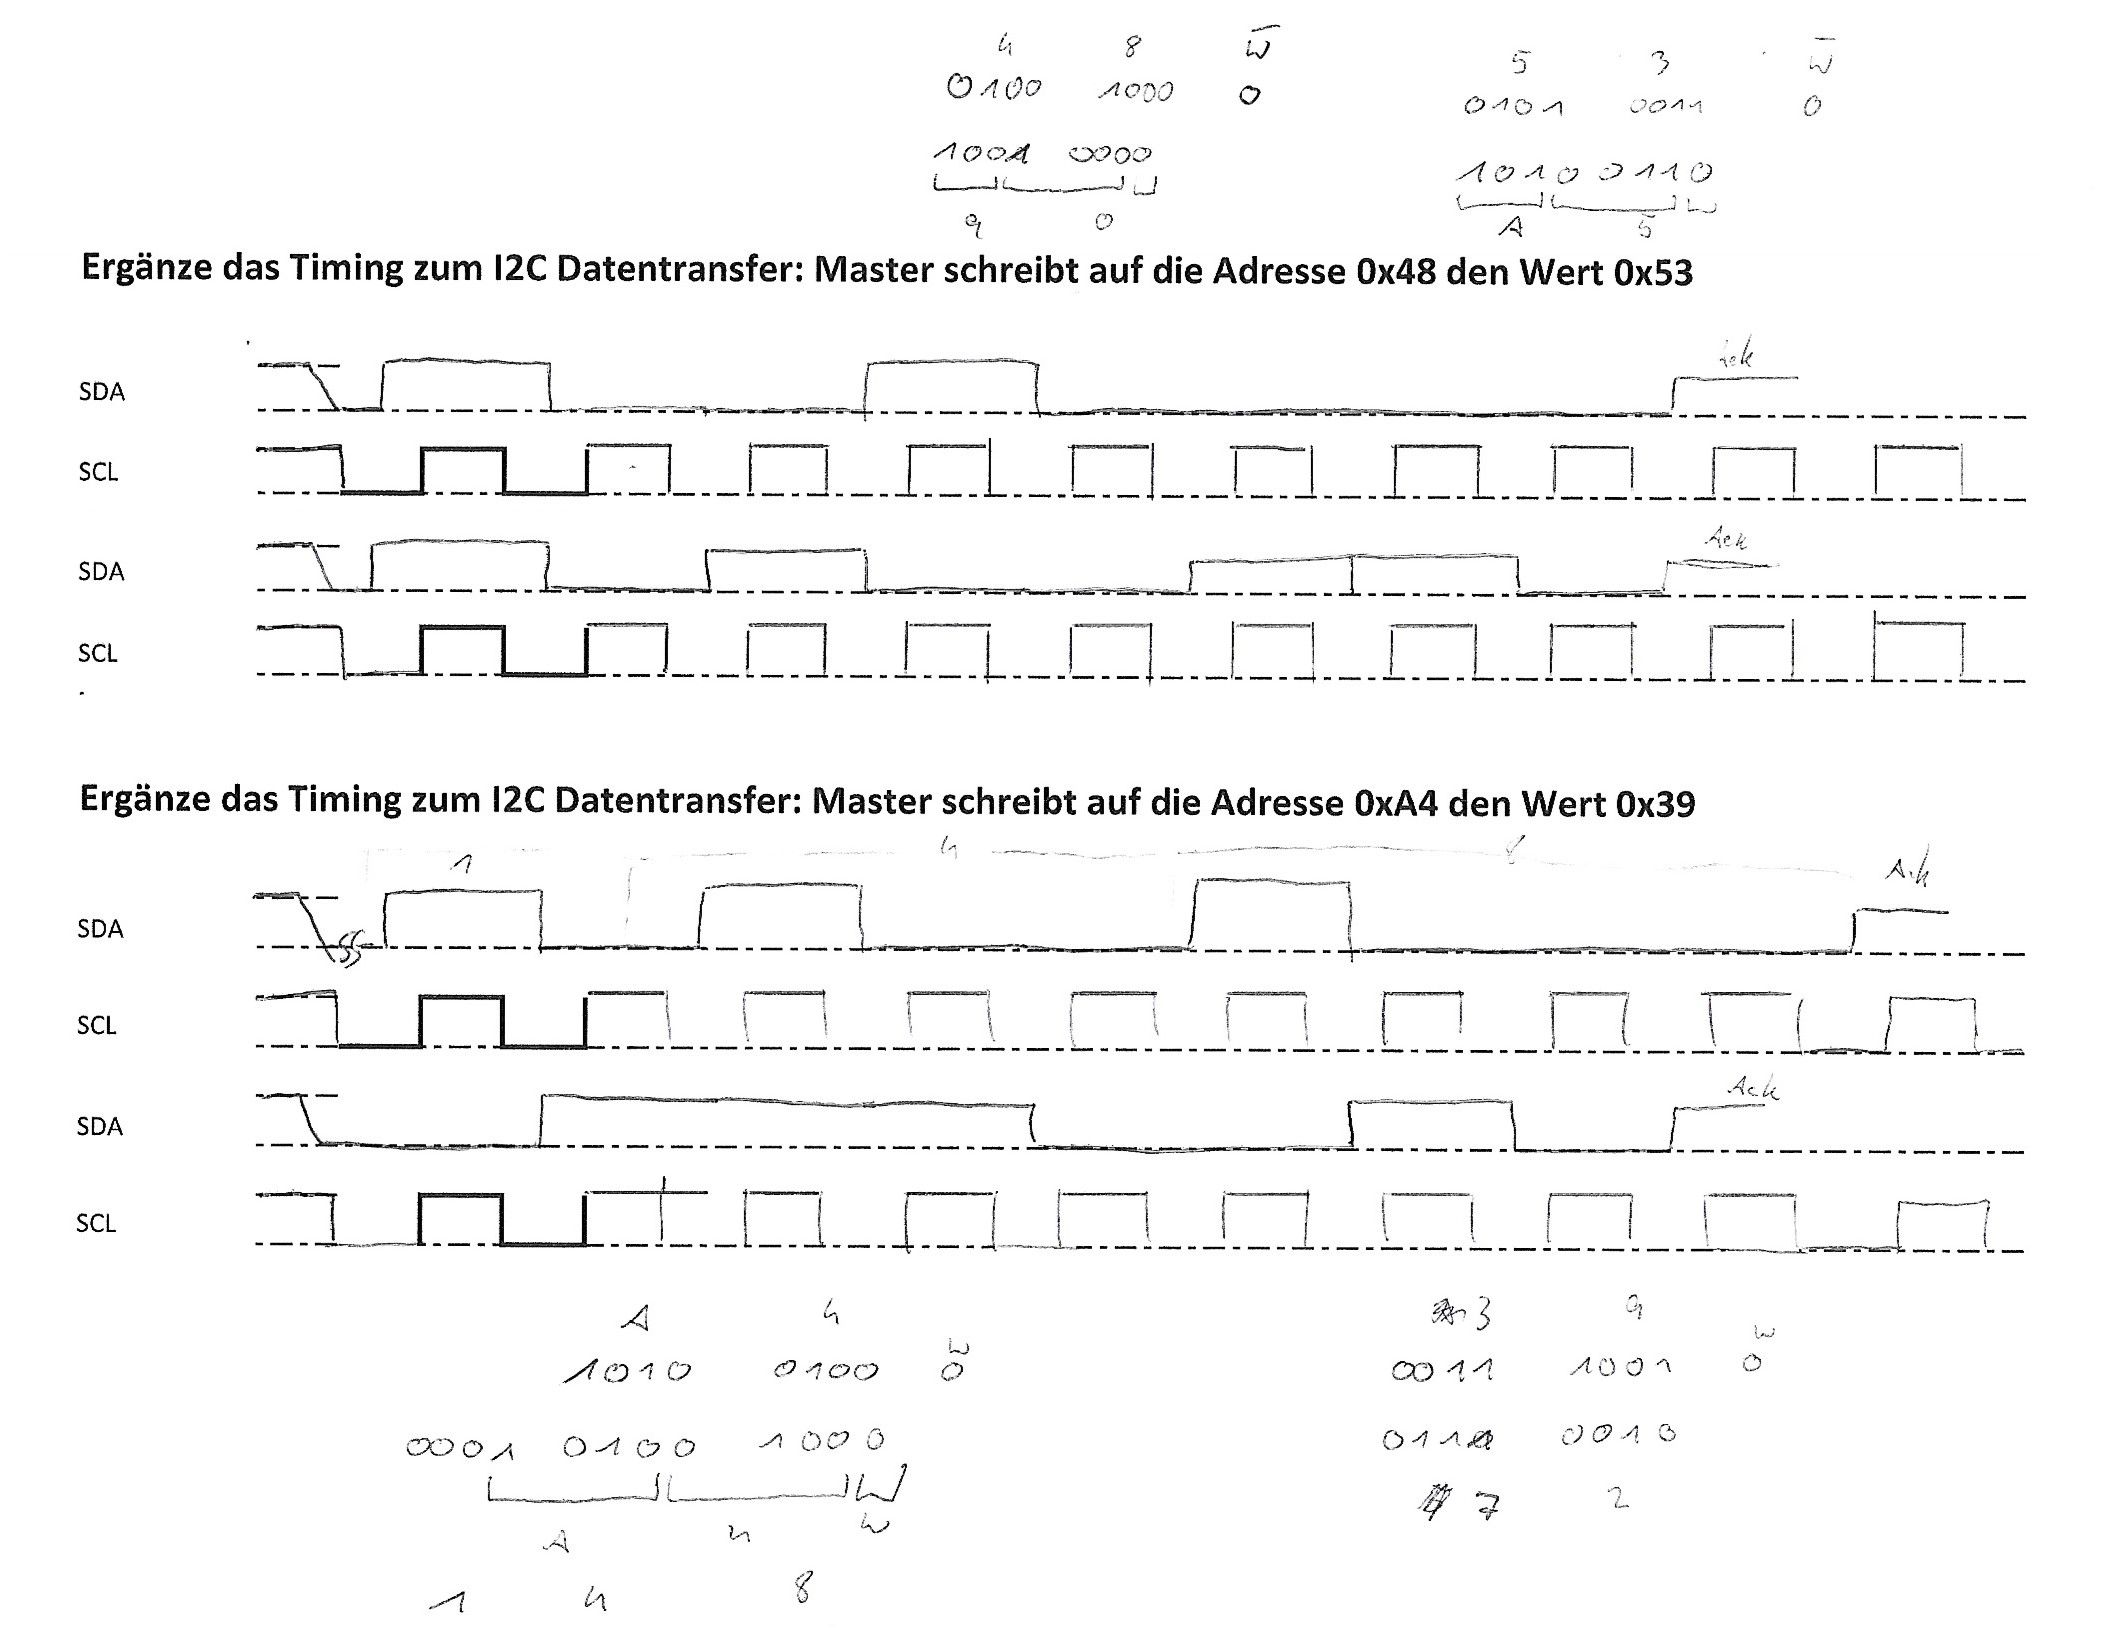 4 8 W̅
0100 1000 0
1001 0000
9 0
5 3 W̅
0101 0011 0
1010 0110
A 5
Ergänze das Timing zum I2C Datentransfer: Master schreibt auf die Adresse 0x48 den Wert 0x53
Ack
SDA
SCL
Ack
SDA
SCL
Ergänze das Timing zum I2C Datentransfer: Master schreibt auf die Adresse 0xA4 den Wert 0x39
1 4 8 Ack
SDA
SCL
Ack
SDA
SCL
A 4
1010 0100 0
W
0001 0100 1000
A 4 W
1 4 8
3 9
W
0011 1001 0
0111 0010
7 2